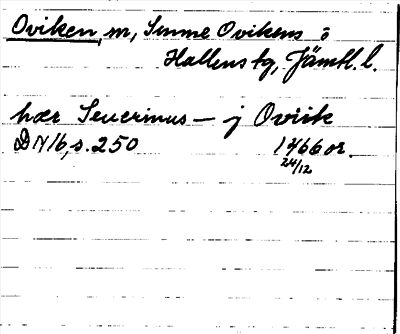 Oviken, m, Sunne Ovikens o
Hallens tg, Jämtl. l.
hær Seuerinus — j Oviik
DN 16, s. 250 1466 or.
24/12